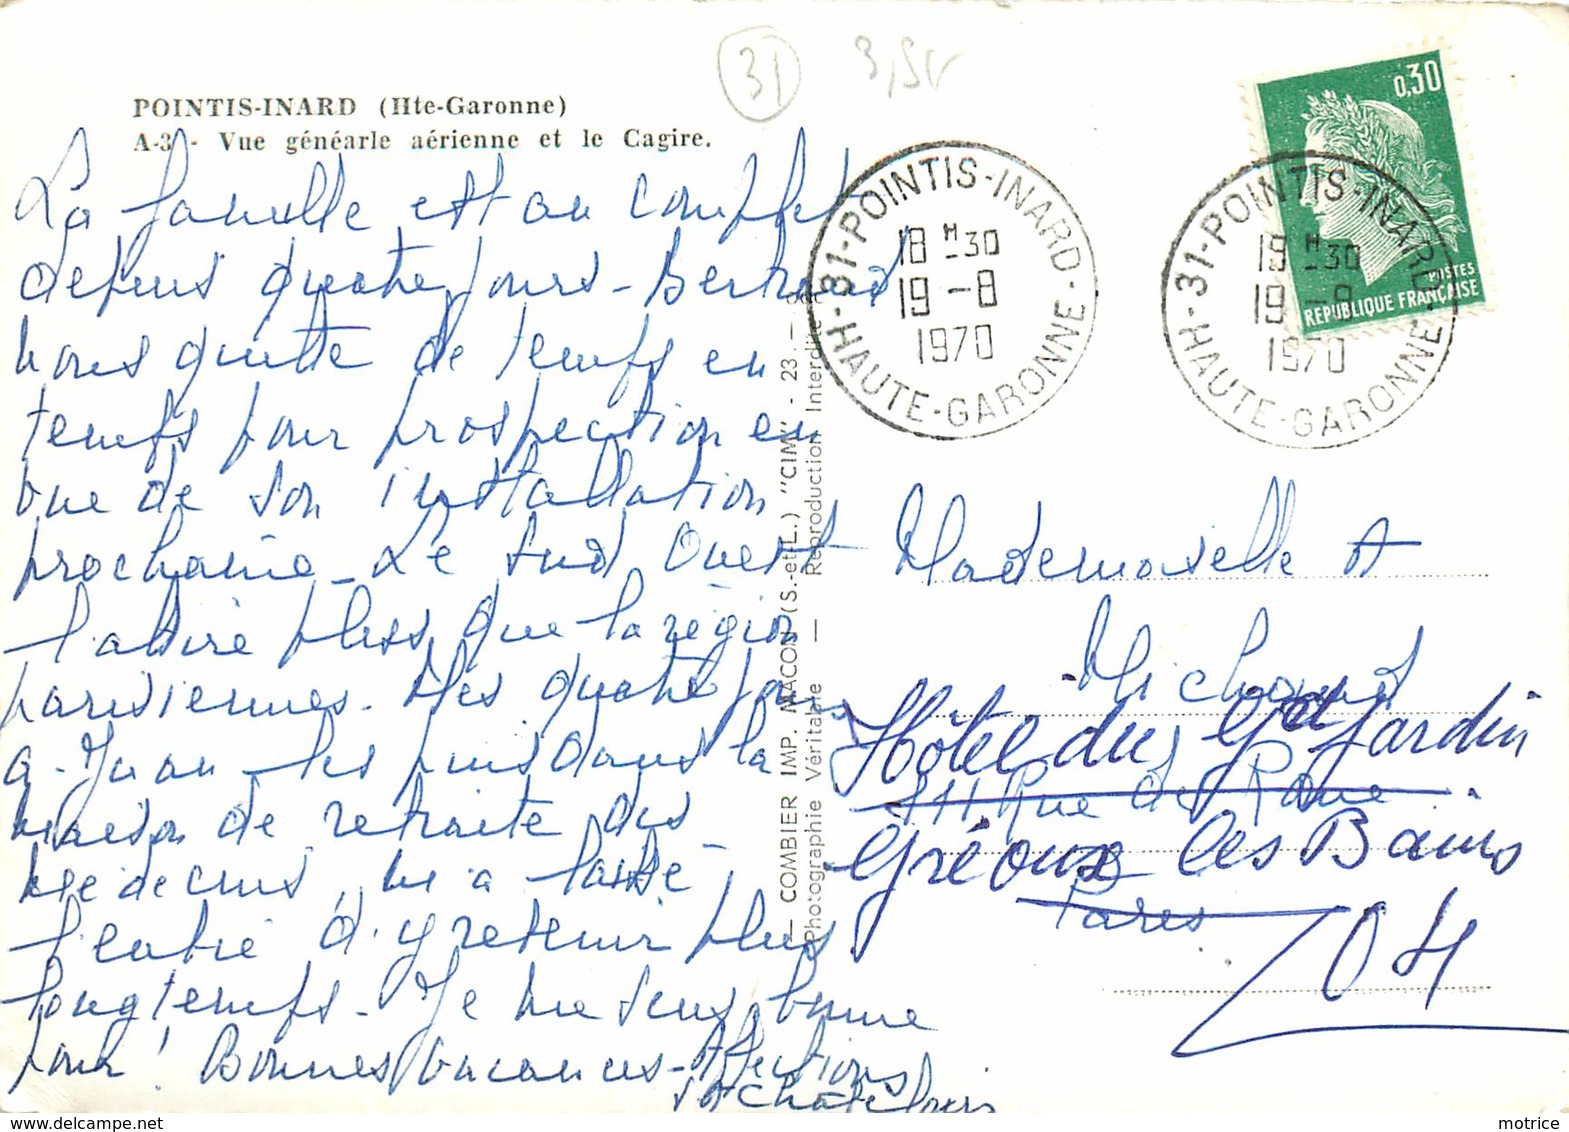 31
POINTIS-INARD (Hte-Garonne)
A-3 - Vue généarle aérienne et le Cagire.
La famille est au complet
depuis quatre jours - Bertrand
nous quitte de temps en
temps pour prospection en
vue de son installation
prochaine - Le Sud Ouest
l'attire plus que la région
parisienne. Mes quatre jours
à Juan les pins dans la
maison de retraite des
médecins, m'a laissé
l'envie d'y retenir plus
longtemps. Je me sens bonne
pour ! Bonnes vacances - Affections
COMBIER IMP. MACON (S.-et-L.) "CIM" - 23.
Photographie Véritable — Reproduction Interdite
31-POINTIS-INARD
18 H 30
19 -8
1970
HAUTE-GARONNE
31-POINTIS-INARD
18 H 30
19 -8
1970
HAUTE-GARONNE
0,30
POSTES
REPUBLIQUE FRANÇAISE
Mademoiselle A
Michaud
Hôtel du Gd Jardin
111 Rue de
Gréoux les Bains
Paris
04
motrice